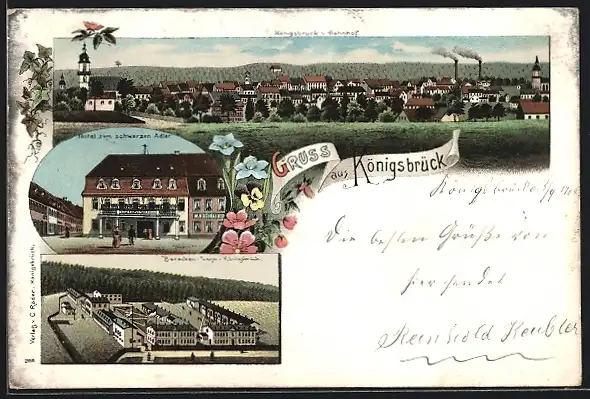 Königsbrück v. Bahnhof.
Hotel zum schwarzen Adler
Gruss
aus Königsbrück
Baracken-Lager Königsbrück
Verlag v. C. Röder, Königsbrück.
Königsbrück
Die besten Grüße von
hier sendet
Reinhold Keubler